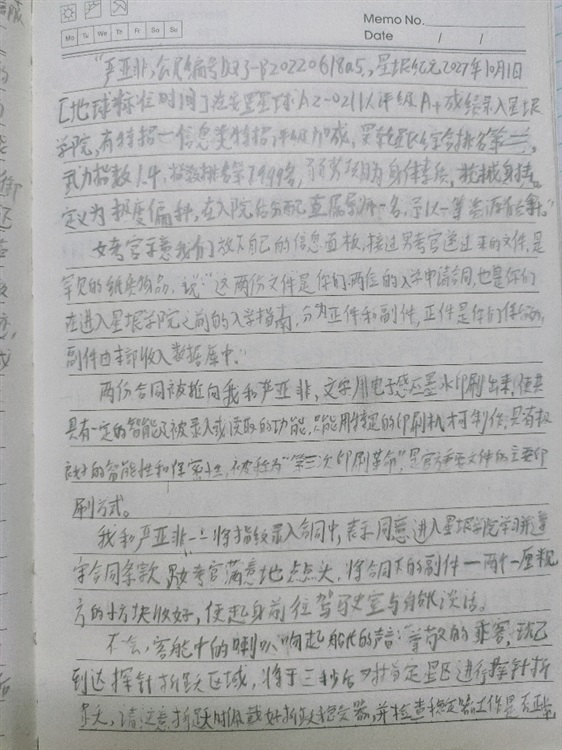 Memo No.
Mo Tu We Th Fr Sa Su
Date / /
“严亚非，会员编号，星垠纪元2027年10月1日
[地球标准时间]在安置星球A2-0211以评级A+成绩录入星垠
学院，有特招—信息类特招，评级加成，累计排名第二，
武力指数1.4，指数排名第7999名，身体素质，枪械射击。
定义为极度偏科，在入院后分配直属导师一名，予以一等资源倾斜。”
女考官示意我们放下自己的信息面板，接过男考官递过来的文件，是
罕见的纸类物品，说：“这两份文件是你们两位的入学申请合同，也是你们
在进入星垠学院之前的入学指南，分为正件和副件，正件是你们保留的，
副件由本部收入数据库中。”
两份合同被推向我和严亚非，文字用电子感应墨水印刷出来，使其
具有一定的智能及被录入或读取的功能，只能用特定的印刷机才可制作，具有极
良好的智能性和保密性，被称为“第三次印刷革命”，是官方重要文件的主要印
刷方式。
我和严亚非一一将指纹录入合同中，表示同意进入星垠学院学习并遵
守合同条款，女考官满意地点点头，将合同下的副件—两个一厘米见
方的小方块收好，便起身前往驾驶室与舰长谈话。
不一会，客舱中的喇叭响起舰长的声音：“尊敬的乘客，现已
到达探针折跃区域，将于三秒后对指定星区进行探针折
跃，请注意折跃时佩戴好折跃稳定器，并检查稳定器工作是否正常，